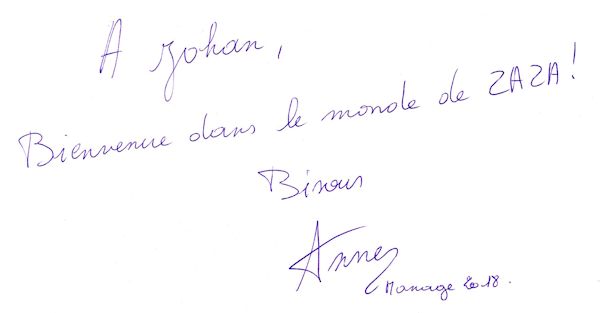 A Johan,
Bienvenue dans le monde de ZAZA!
Bisous
Anne
Manage 2018.